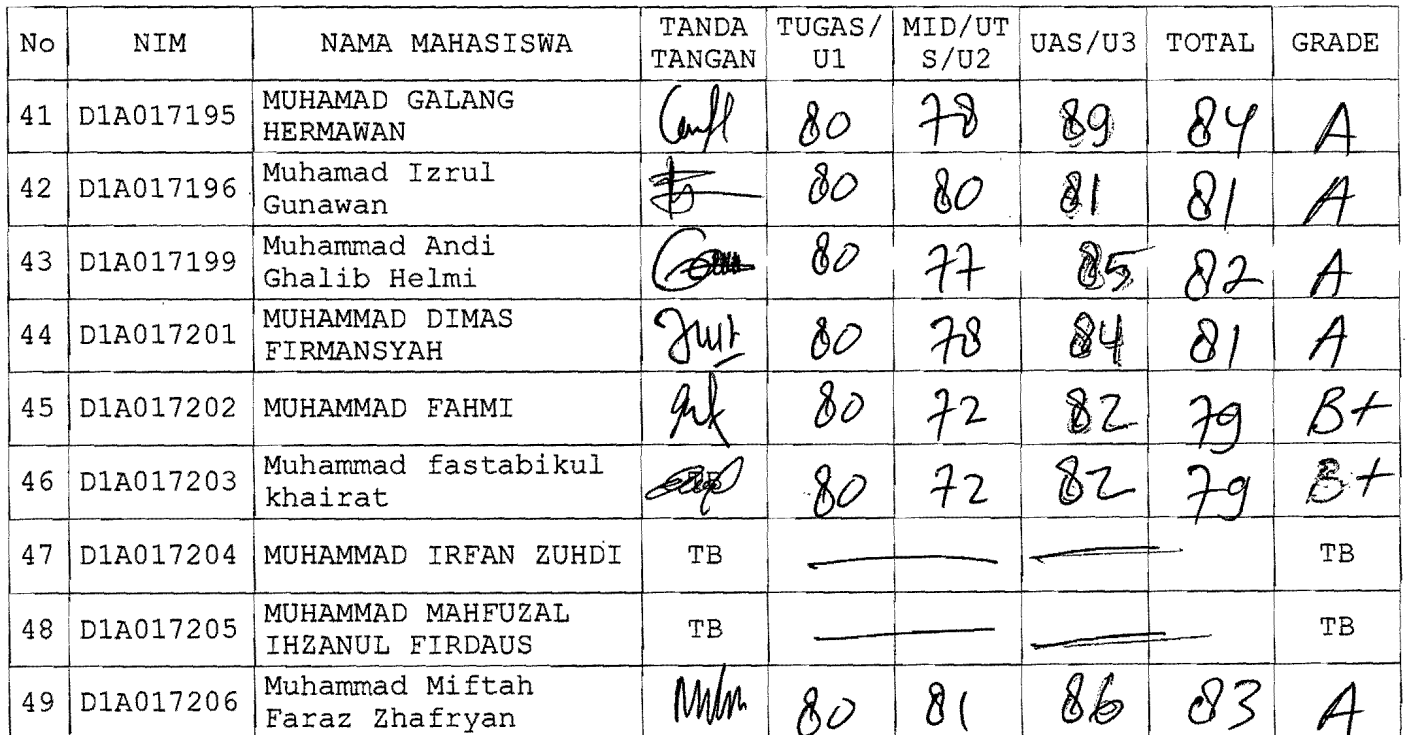 No NIM NAMA MAHASISWA TANDA TANGAN TUGAS/ U1 MID/UT S/U2 UAS/U3 TOTAL GRADE
41 D1A017195 MUHAMAD GALANG HERMAWAN 80 78 89 84 A
42 D1A017196 Muhamad Izrul Gunawan 80 80 81 81 A
43 D1A017199 Muhammad Andi Ghalib Helmi 80 77 85 82 A
44 D1A017201 MUHAMMAD DIMAS FIRMANSYAH 80 78 84 81 A
45 D1A017202 MUHAMMAD FAHMI 80 72 82 79 B+
46 D1A017203 Muhammad fastabikul khairat 80 72 82 79 B+
47 D1A017204 MUHAMMAD IRFAN ZUHDI TB TB
48 D1A017205 MUHAMMAD MAHFUZAL IHZANUL FIRDAUS TB TB
49 D1A017206 Muhammad Miftah Faraz Zhafryan 80 81 86 83 A